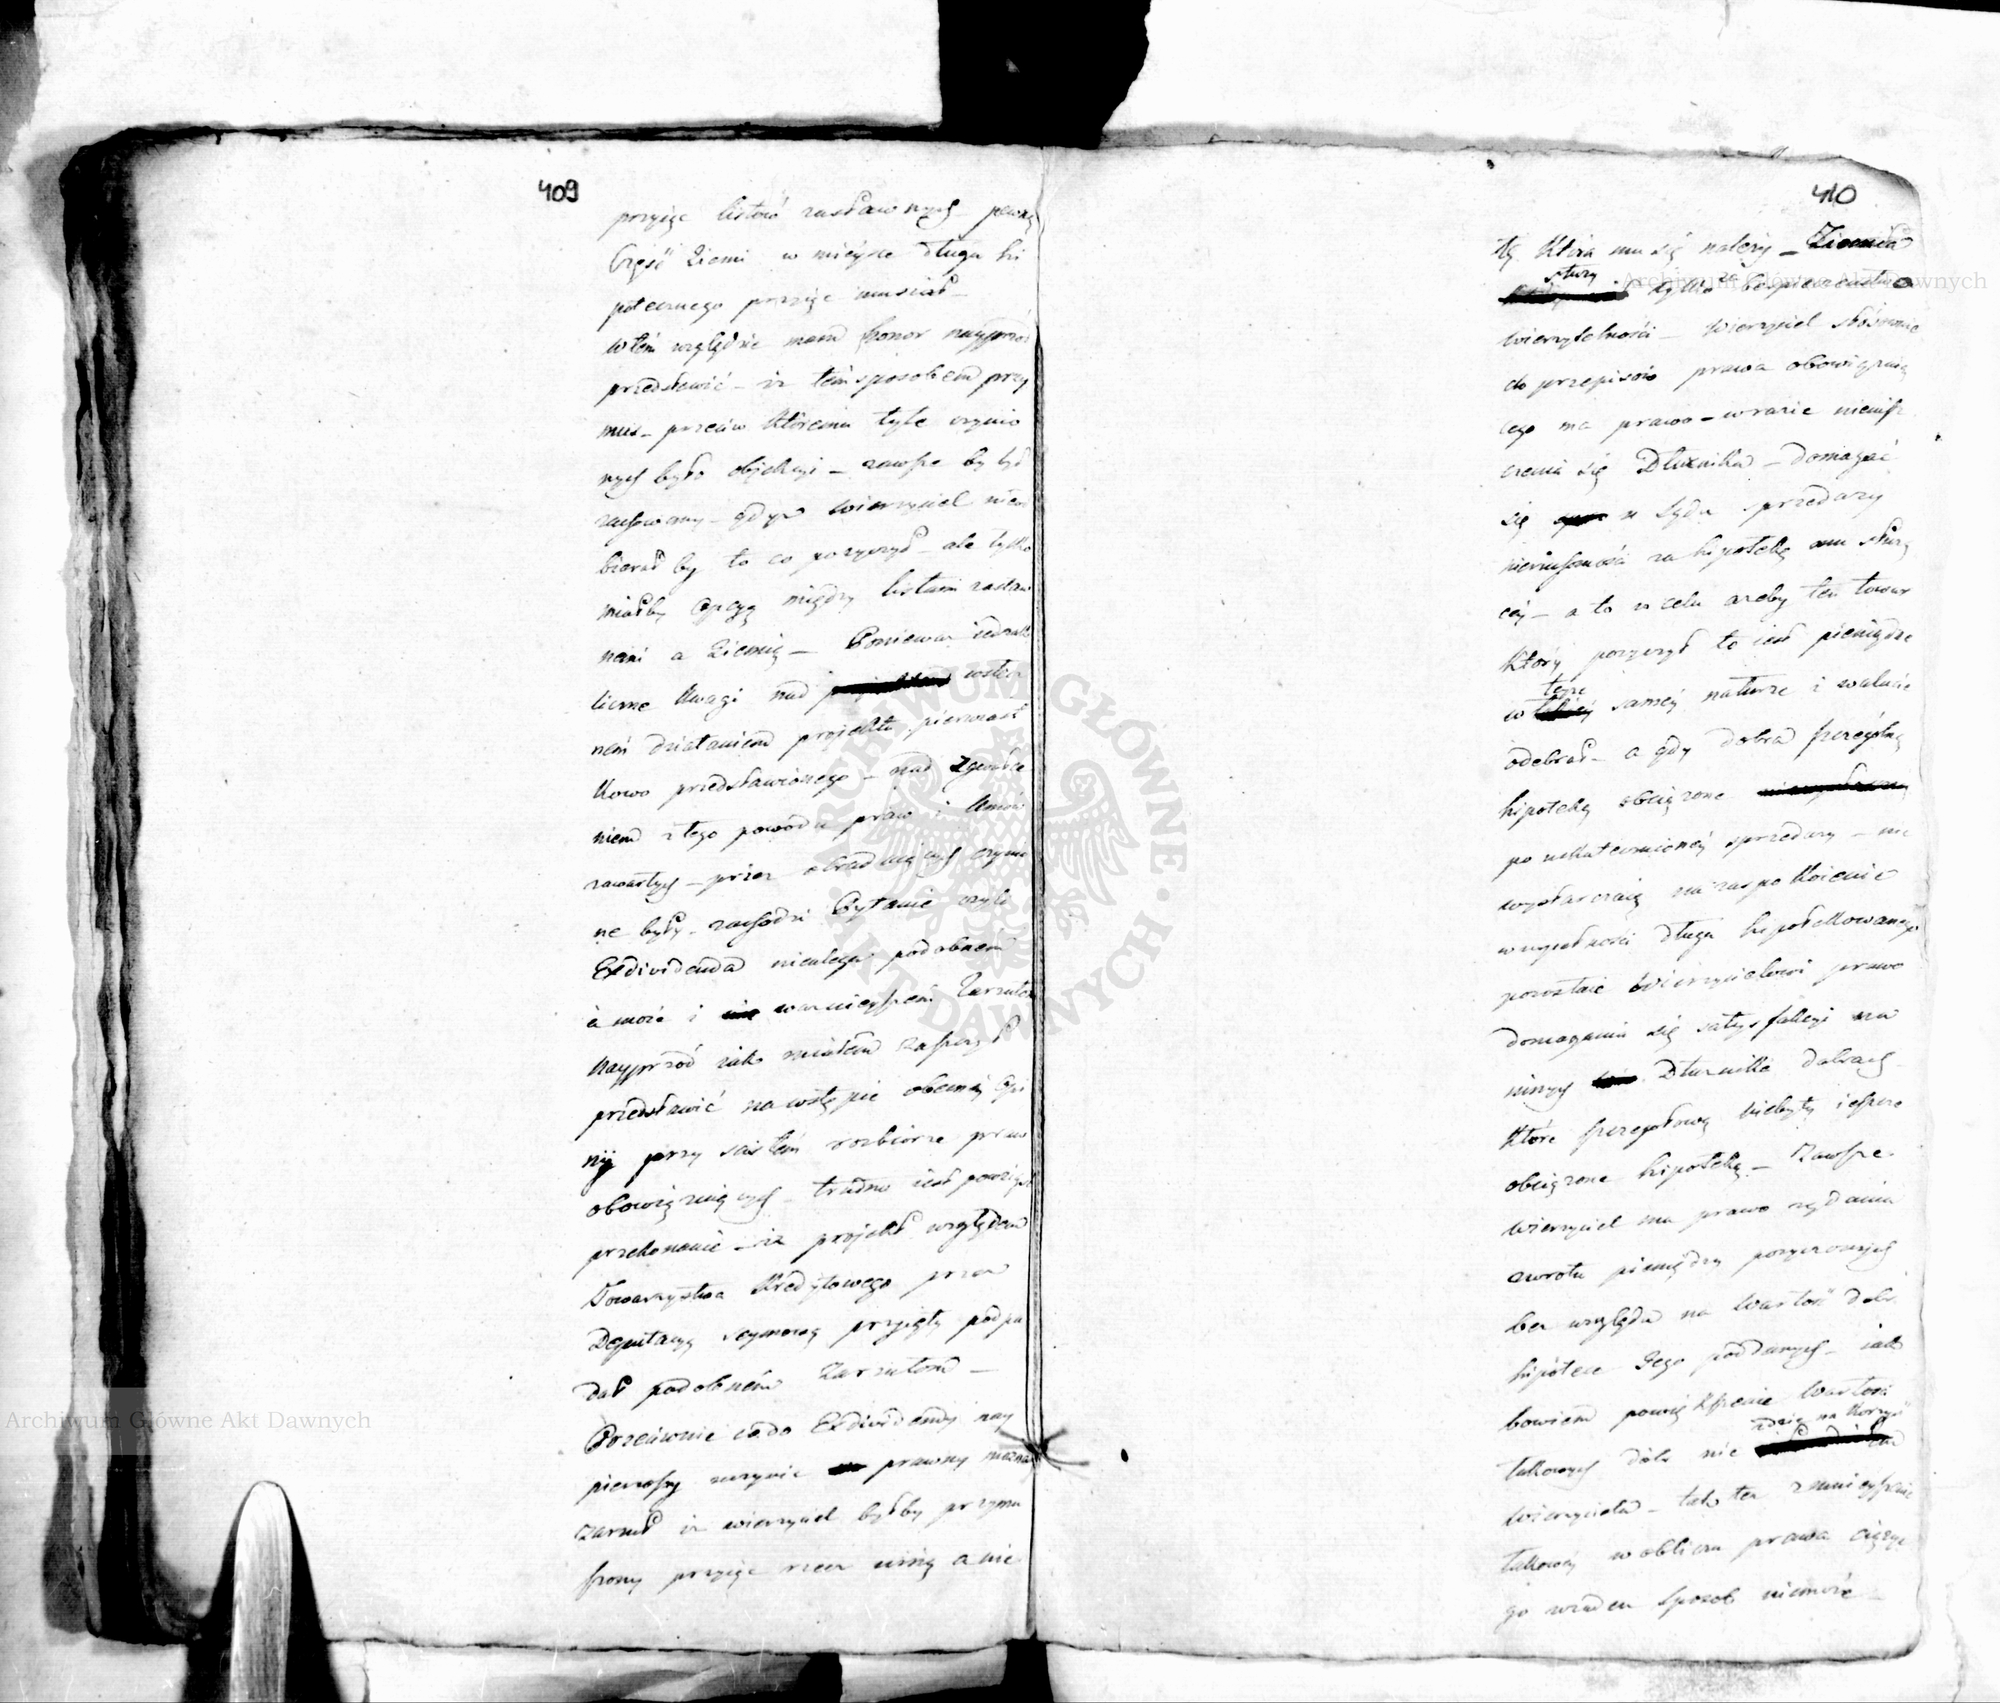 409
przyjąc listów zastawnych pewną
Część Ziemi w mieysce długu hi
potecznego przyjąc musiał_
W tém względzie mam honor nayprzód
przedstawić _ iz tém sposobem przy
mus _ przeciw któremu tyle czynio
nych było objekcyi _ zawsze by był
zachowany _ gdyz wierzyciel nieod
bierał by to co pozyczył _ ale tylko
miałby Opcyą między listami zastaw
nemi a Ziemią _ Ponieważ iednak
liczne Uwagi nad wstecz
nem działaniem projektu pierwiast
kowo przedstawionego _ nad zgwałce
niem z tego powodu praw i Umów
zawartych _ przez obraduiących czynio
ne były _ zachodzi Pytanie czyli
Exdividenda nieulega podobnem
a może i wazniejszem Zarzutom
Nayprzód iako miałem zaszczyt
przedstawić na wstępie obecney Opi
nij przy scisłém rozbiorze praw
obowiązuiących _ trudno iest powziąść
przekonanie _ iz projekt względem
Towarzystwa Kredytowego przez
Deputacyą Seymową przyięty podpa
dał podobném Zarzutom _
Przeciwnie co do Exdividendy nay
pierwszy uczynić prawny można
zarzut iz wierzyciel byłby przymu
szony przyjąc rzecz inną a nie
410
tę która mu się należy _ Ziemia
służy tylko za bezpieczeństwo
wierzytelności _ Wierzyciel stósownie
do przepisów prawa obowiązuią
cego ma prawo _ w razie nieuisz
czenia się Dłużnika _ domagać
się u Sądu sprzedaży
nieruchomości za hipotekę mu służą
cey _ a to w celu azeby ten towar
który pozyczył to iest pieniądze
w teyze samey naturze i walucie
odebrał _ a gdy dobra szczególną
hipoteką obciązone
po uskutecznioney sprzedazy _ nie
wystarczaią na zaspokoienie
w zupełności długu hipotekowanego
pozostaie Wierzycielowi prawo
domagania się satysfakcyi na
innych Dłużnika dobrach _
które szczegółową niebyły ieszcze
obciązone hipoteką _ Zawsze
wierzyciel ma prawo ządania
zwrotu pieniędzy pozyczonych
bez względu na Wartość dóbr
hipotece Jego poddanych _ iak
bowiem powiększenie Wartości
takowych dóbr nie idzie na korzyść
wierzyciela _ tak tez zmnieyszenie
takowey w obliczu prawa ciązyć
go w zaden Sposob niemoże _